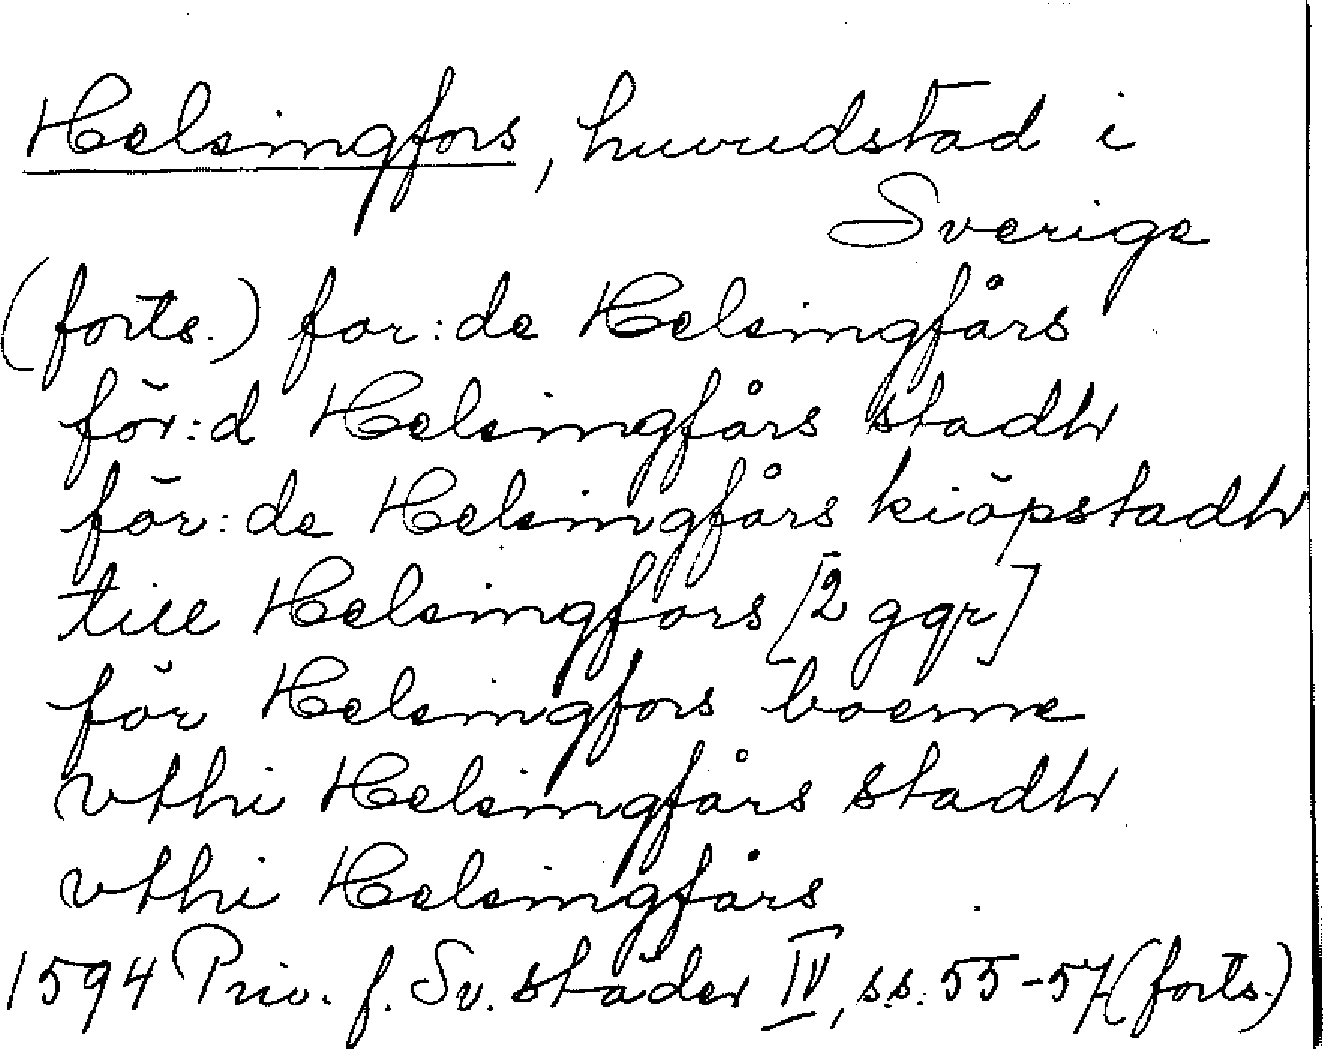 Helsingfors, huvudstad i
Sverige
(forts.) for:de Helsingfårs
för:d Helsingfårs stadh
för:de Helsingfårs kiöpstadh
till Helsingfors [2 ggr]
för Helsingfors boerne
vthi Helsingfårs stadh
vthi Helsingfårs
1594 Priv. f. Sv. städer IV, ss. 55-57 (forts.)